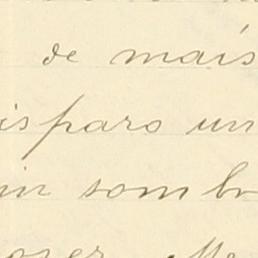 de mais
isparo un
in sombr
oser. Me